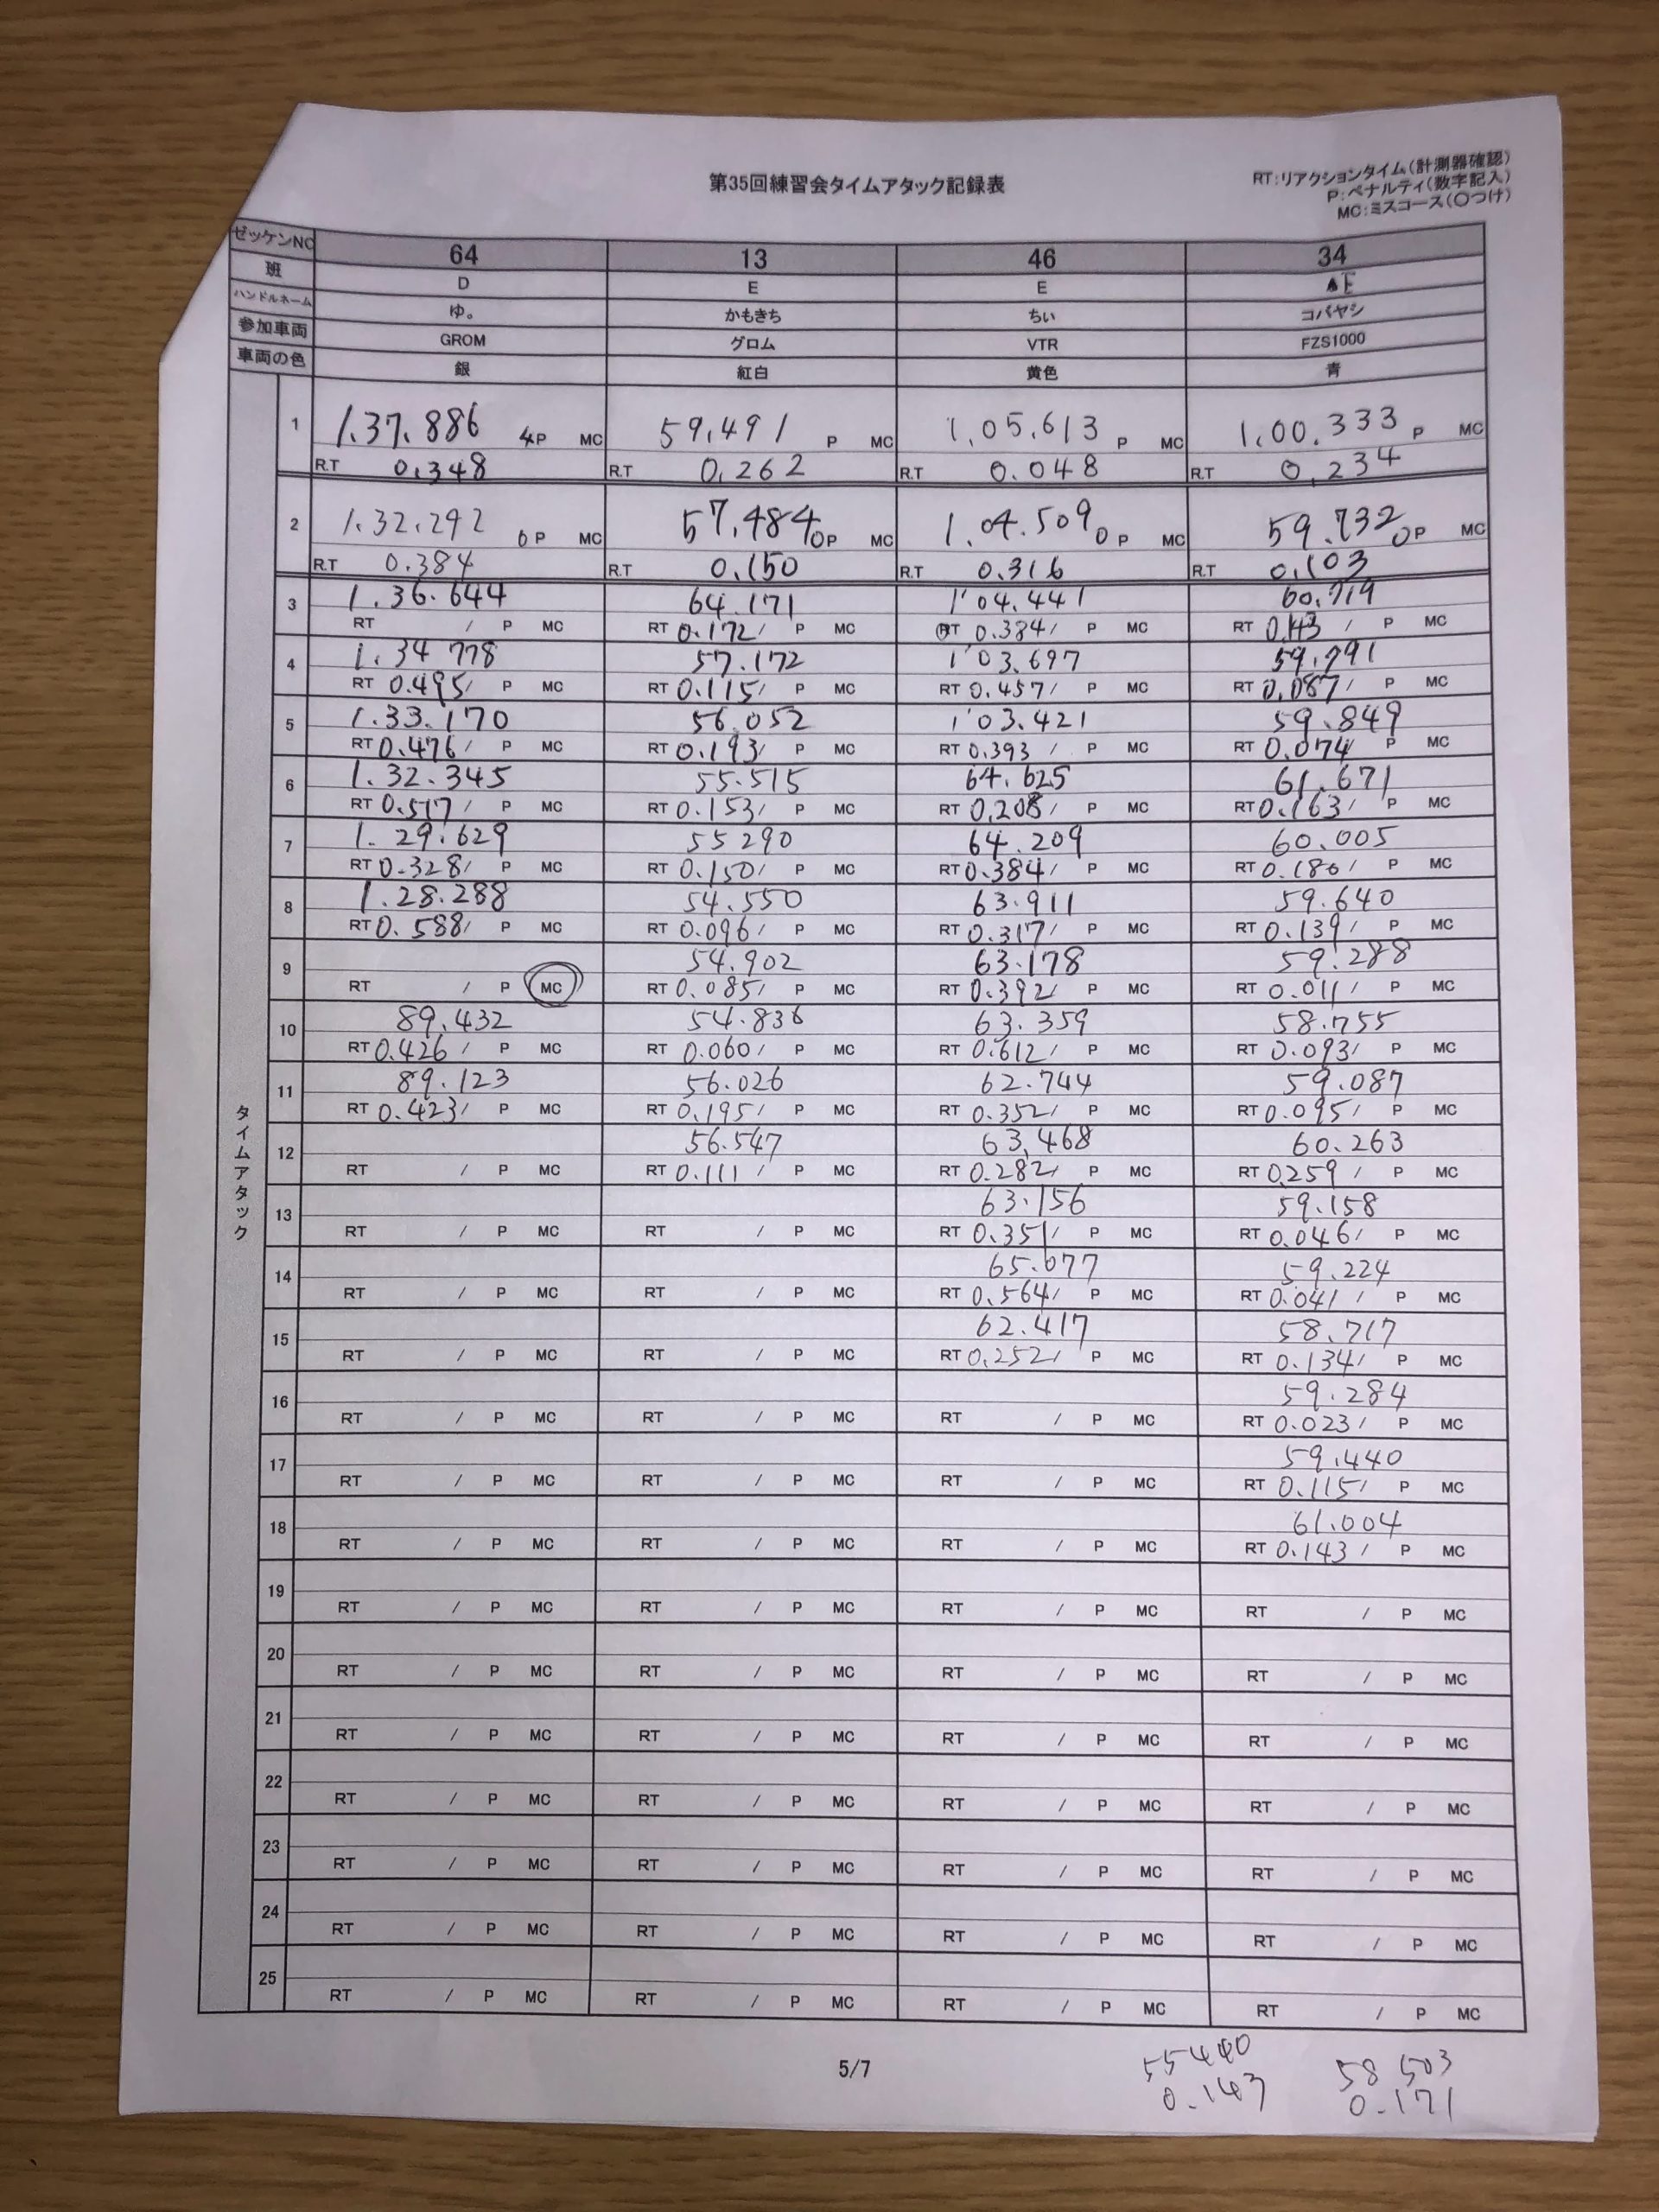 第35回練習会タイムアタック記録表
RT:リアクションタイム(計測器確認)
P:ペナルティ(数字記入)
MC:ミスコース(〇つけ)
ゼッケンNO 64 13 46 34
班 D E E E
ハンドルネーム ゆ。 かもきち ちい コバヤシ
参加車両 GROM グロム VTR FZS1000
車両の色 銀 紅白 黄色 青
タイムアタック
1 1.37.886 4P MC 59.491 P MC 1.05.613 P MC 1.00.333 P MC
R.T 0.348 R.T 0.262 R.T 0.048 R.T 0.234
2 1.32.292 0P MC 57.484 0P MC 1.04.509 0P MC 59.732 0P MC
R.T 0.384 R.T 0.150 R.T 0.316 R.T 0.103
3 1.36.644 64.171 1'04.441 60.719
RT / P MC RT 0.172/ P MC RT 0.384/ P MC RT 0.143 / P MC
4 1.34 778 57.172 1'03.697 59.791
RT 0.495/ P MC RT 0.115/ P MC RT 0.457/ P MC RT 0.087/ P MC
5 1.33.170 56.052 1'03.421 59.849
RT 0.476/ P MC RT 0.193/ P MC RT 0.393 / P MC RT 0.074/ P MC
6 1.32.345 55.515 64.625 61.671
RT 0.517/ P MC RT 0.153/ P MC RT 0.208/ P MC RT 0.163/ P MC
7 1.29.629 55 290 64.209 60.005
RT 0.328/ P MC RT 0.150/ P MC RT 0.384/ P MC RT 0.186/ P MC
8 1.28.288 54.550 63.911 59.640
RT 0.588/ P MC RT 0.096/ P MC RT 0.317/ P MC RT 0.139/ P MC
9 54.902 63.178 59.288
RT / P MC RT 0.085/ P MC RT 0.392/ P MC RT 0.011/ P MC
10 89.432 54.836 63.359 58.755
RT 0.426/ P MC RT 0.060/ P MC RT 0.612/ P MC RT 0.093/ P MC
11 89.123 56.026 62.744 59.087
RT 0.423/ P MC RT 0.195/ P MC RT 0.352/ P MC RT 0.095/ P MC
12 56.547 63.468 60.263
RT / P MC RT 0.111/ P MC RT 0.282/ P MC RT 0.259/ P MC
13 63.156 59.158
RT / P MC RT / P MC RT 0.351/ P MC RT 0.046/ P MC
14 65.077 59.224
RT / P MC RT / P MC RT 0.564/ P MC RT 0.041/ P MC
15 62.417 58.717
RT / P MC RT / P MC RT 0.252/ P MC RT 0.134/ P MC
16 59.284
RT / P MC RT / P MC RT / P MC RT 0.023/ P MC
17 59.440
RT / P MC RT / P MC RT / P MC RT 0.115/ P MC
18 61.004
RT / P MC RT / P MC RT / P MC RT 0.143/ P MC
19
RT / P MC RT / P MC RT / P MC RT / P MC
20
RT / P MC RT / P MC RT / P MC RT / P MC
21
RT / P MC RT / P MC RT / P MC RT / P MC
22
RT / P MC RT / P MC RT / P MC RT / P MC
23
RT / P MC RT / P MC RT / P MC RT / P MC
24
RT / P MC RT / P MC RT / P MC RT / P MC
25
RT / P MC RT / P MC RT / P MC RT / P MC
5/7
55 440 58 503
0.143 0.171